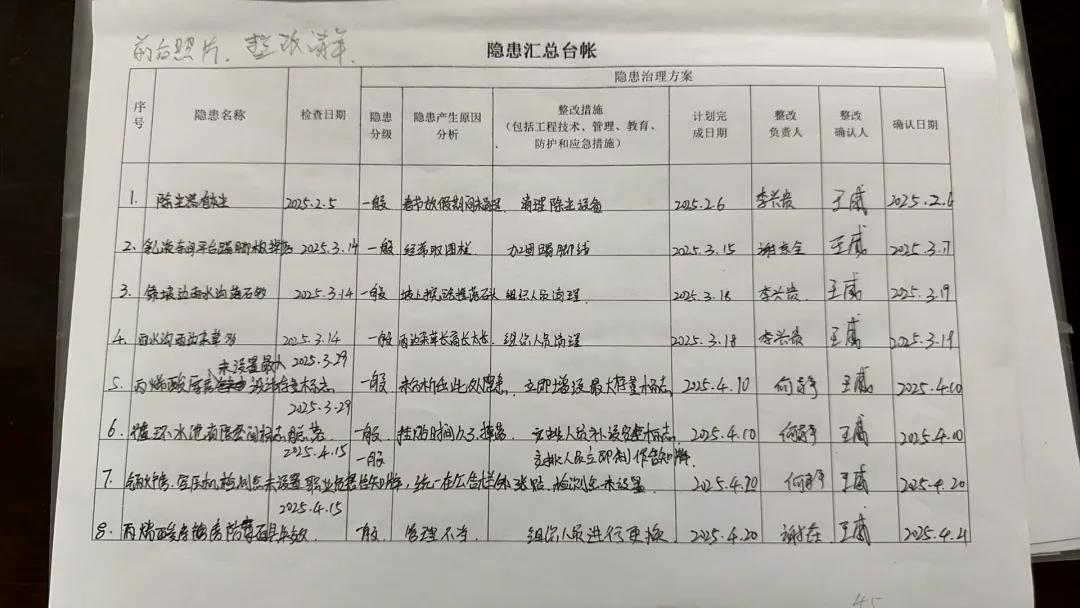 前台照片、整改清单.
隐患汇总台帐
序号 隐患名称 检查日期 隐患治理方案
隐患分级 隐患产生原因分析 整改措施（包括工程技术、管理、教育、防护和应急措施） 计划完成日期 整改负责人 整改确认人 确认日期
1. 除尘器 2025.2.5 一般 春节放假期间未清理 清理除尘设备 2025.2.6 李兴贵 王威 2025.2.6
2. 乳液车间平台踢脚板 2025.3.14 一般 加固踢脚线 2025.3.15 王威 2025.3.17
3. 边雨水沟落石 2025.3.14 一般 组织人员清理. 2025.3.18 李兴贵. 王威 2025.3.19
4. 雨水沟两边杂草多 2025.3.14 一般 两边杂草长 组织人员清理 2025.3.18 李兴贵 王威 2025.3.19
未设置最大 2025.3.29
5. 丙烯酸库房 标志 一般 立即增设最大存量标志 2025.4.10 王威 2025.4.10
2025.3.29
6. 循环水池有限空间标志脱落 一般. 挂的时间久了掉落. 安排人员补设安全标志. 2025.4.10 王威 2025.4.10
2025.4.15 一般 安排人员立即制作告知牌.
7. 空压机检测点未设置职业危害告知牌, 统一在公告栏张贴. 检测点未设置. 2025.4.20 王威 2025.4.20
2025.4.15
8. 丙烯酸库房防毒面具失效. 一般. 管理不善 组织人员进行更换 2025.4.20 王威 2025.4.21